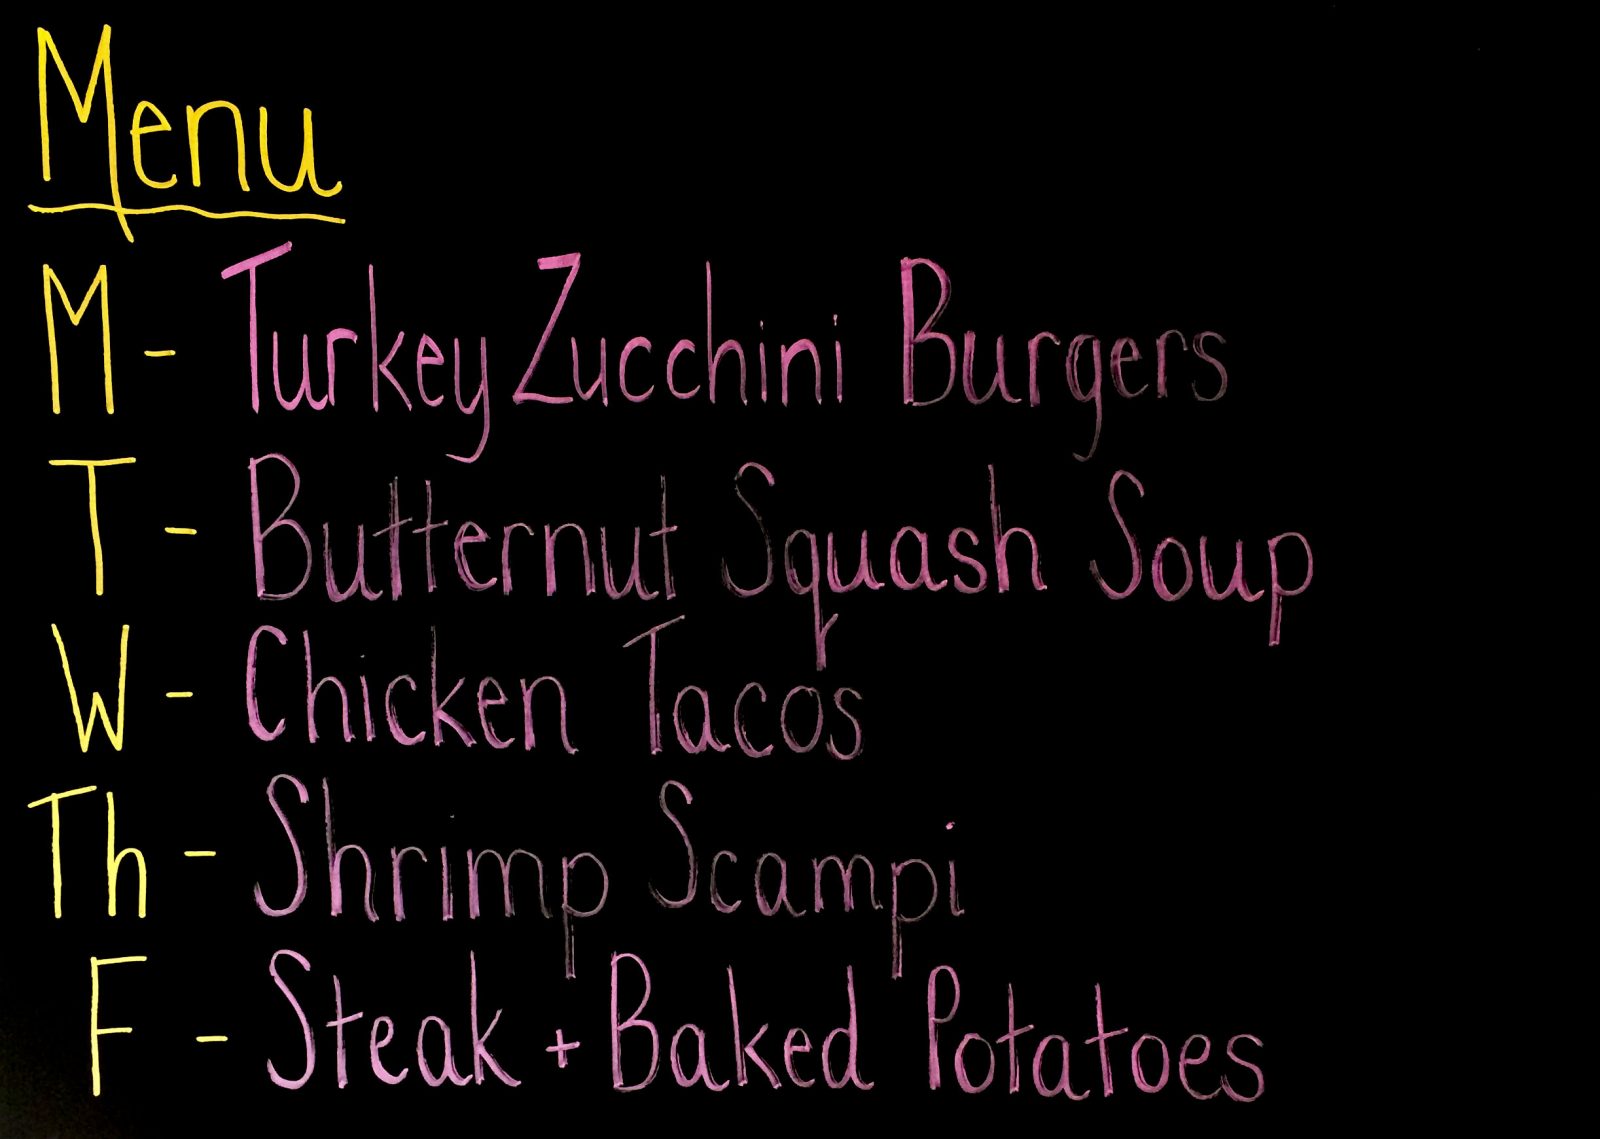 Menu
M - Turkey Zucchini Burgers
T - Butternut Squash Soup
W - Chicken Tacos
Th - Shrimp Scampi
F - Steak + Baked Potatoes